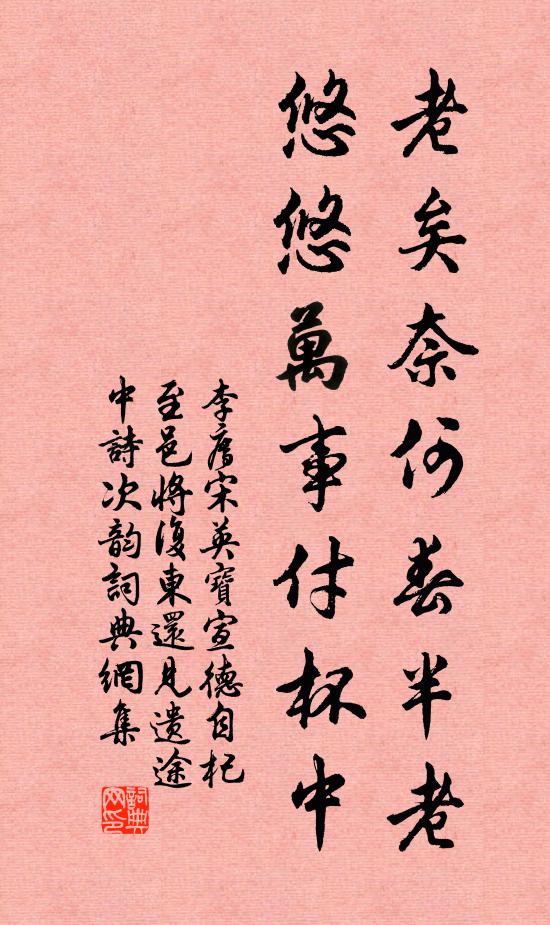 老矣奈何春半老
悠悠萬事付杯中
李廌宋英寶宣德自杞
至邑將復東還見遺途
中詩次韵詞典網集
詞典網印